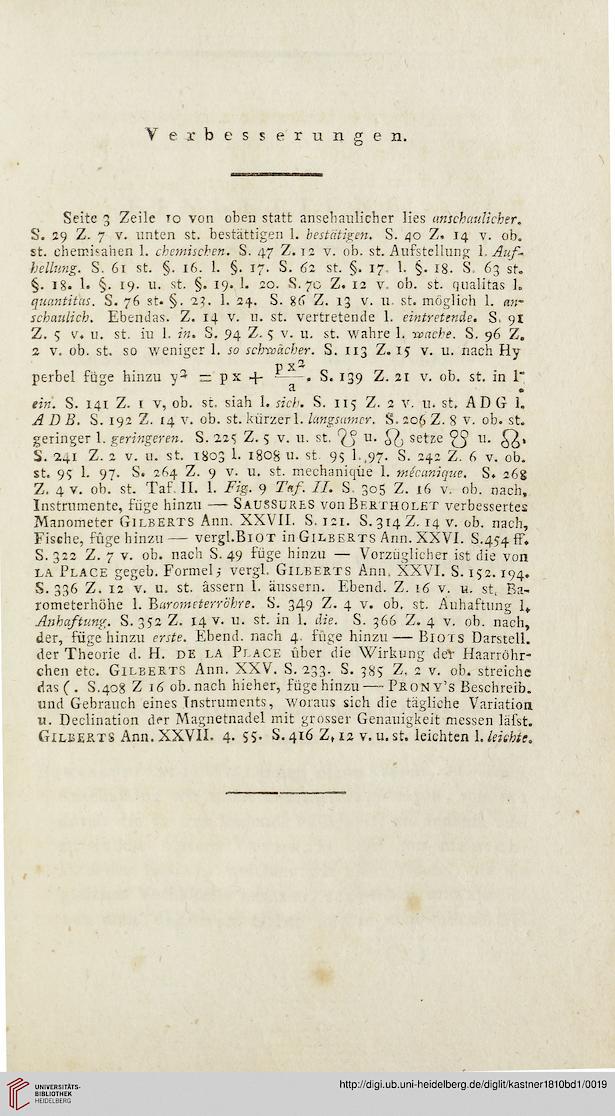 Verbesserungen.
Seite 3 Zeile 10 von oben statt ansehaulicher lies anschaulicher.
S. 29 Z. 7 v. unten st. bestättigen l. bestätigen. S. 40 Z. 14 v. ob.
st. chemisahen l. chemischen. S. 47 Z. 12 v. ob. st. Aufstellung l. Auf-
hellung. S. 61 st. §. 16. l. §. 17. S. 62 st. §. 17. l. §. 18. S. 63 st.
§. 18. l. §. 19. u. st. §. 19. l. 20. S. 70 Z. 12 v. ob. st. qualitas l.
quantitas. S. 76 st. §. 23. l. 24. S. 86 Z. 13 v. u. st. möglich l. an-
schaulich. Ebendas. Z. 14 v. u. st. vertretende l. eintretende. S. 91
Z. 5 v. u. st. iu l. in. S. 94 Z. 5 v. u. st. wahre l. wache. S. 96 Z.
2 v. ob. st. so weniger l. so schwächer. S. 113 Z. 15 v. u. nach Hy
perbel füge hinzu y² = px + px²/a. S. 139 Z. 21 v. ob. st. in l.
ein. S. 141 Z. 1 v. ob. st. siah l. sich. S. 115 Z. 2 v. u. st. ADG l.
ADB. S. 192 Z. 14 v. ob. st. kürzer l. langsamer. S. 206 Z. 8 v. ob. st.
geringer l. geringeren. S. 225 Z. 5 v. u. st. u. setze u.
S. 241 Z. 2 v. u. st. 1803 l. 1808 u. st. 95 l. 97. S. 242 Z. 6 v. ob.
st. 95 l. 97. S. 264 Z. 9 v. u. st. mechaniqüe l. mécanique. S. 268
Z. 4 v. ob. st. Taf. II. l. Fig. 9 Taf. II. S. 305 Z. 16 v. ob. nach,
Instrumente, füge hinzu — SAUSSURES von BERTHOLET verbessertes
Manometer GILBERTS Ann. XXVII. S. 121. S. 314 Z. 14 v. ob. nach,
Fische, füge hinzu — vergl. BIOT in GILBERTS Ann. XXVI. S. 454 ff.
S. 322 Z. 7 v. ob. nach S. 49 füge hinzu — Vorzüglicher ist die von
LA PLACE gegeb. Formel; vergl. GILBERTS Ann. XXVI. S. 152. 194.
S. 336 Z. 12 v. u. st. åssern l. äussern. Ebend. Z. 16 v. u. st. Ba-
rometerhöhe l. Barometerröhre. S. 349 Z. 4 v. ob. st. Anhaftung l.
Anhaftung. S. 352 Z. 14 v. u. st. in l. die. S. 366 Z. 4 v. ob. nach,
der, füge hinzu erste. Ebend. nach 4. füge hinzu — BIOTS Darstell.
der Theorie d. H. DE LA PLACE über die Wirkung der Haarröhr-
chen etc. GILBERTS Ann. XXV. S. 233. S. 385 Z. 2 v. ob. streiche
das (. S. 408 Z 16 ob. nach hieher, füge hinzu — PRONY'S Beschreib.
und Gebrauch eines Instruments, woraus sich die tägliche Variation
u. Declination der Magnetnadel mit grosser Genauigkeit messen läfst.
GILBERTS Ann. XXVII. 4. 55. S. 416 Z. 12 v. u. st. leichten l. leichte.
UNIVERSITÄTS-
BIBLIOTHEK
HEIDELBERG
http://digi.ub.uni-heidelberg.de/diglit/kastner1810bd1/0019